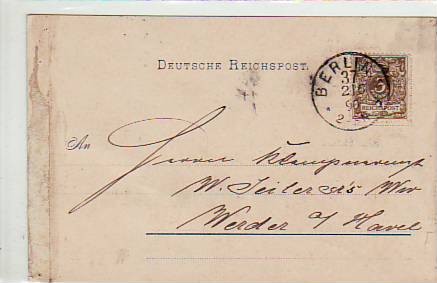 DEUTSCHE REICHSPOST.
BERLIN
37
3
REICHSPOST
An
Herrn Klempnermst
W. Seiler's Wwe
Werder a/ Havel